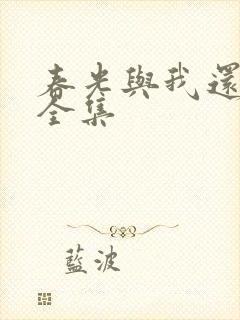 春光與我還
全集
藍波